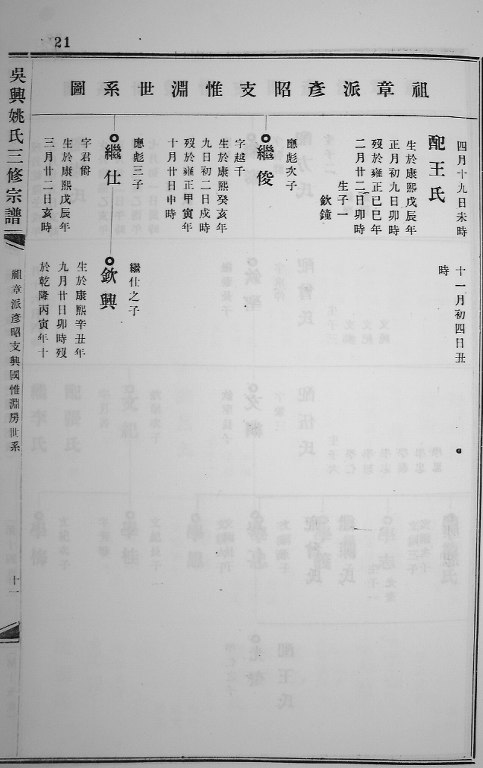 21
祖章派彥昭支惟淵世系圖
四月十九日未時
配王氏
生於康熙戊辰年
正月初九日卯時
歿於雍正己巳年
二月廿二日卯時
生子一
欽鐘
應彪次子
繼俊
字越千
生於康熙癸亥年
九日初二日戌時
歿於雍正甲寅年
十月廿日申時
應彪三子
繼仕
字君佾
生於康熙戊辰年
三月廿二日亥時
十一月初四日丑
時
繼仕之子
欽興
生於康熙辛丑年
九月廿日卯時歿
於乾隆丙寅年十
吳興姚氏三修宗譜
祖章派彥昭支興國惟淵房世系
十一